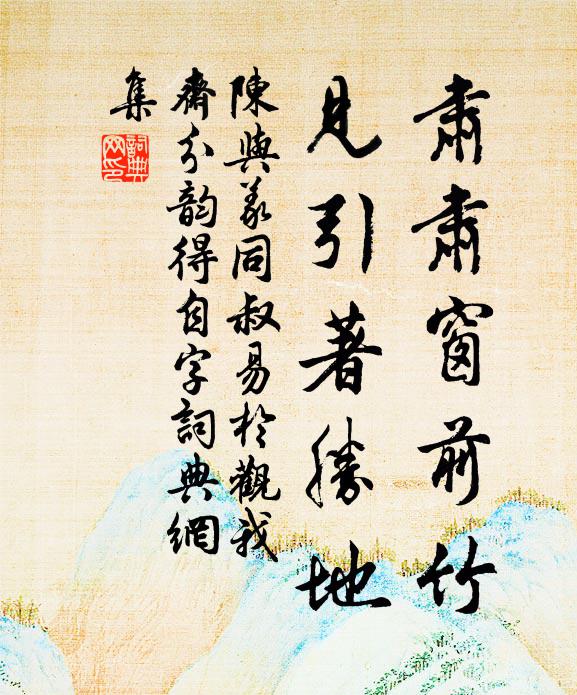 肅肅窗前竹
見引著勝地
陳與義同叔易於觀我
齋分韵得自字詞典網
集
詞典網印